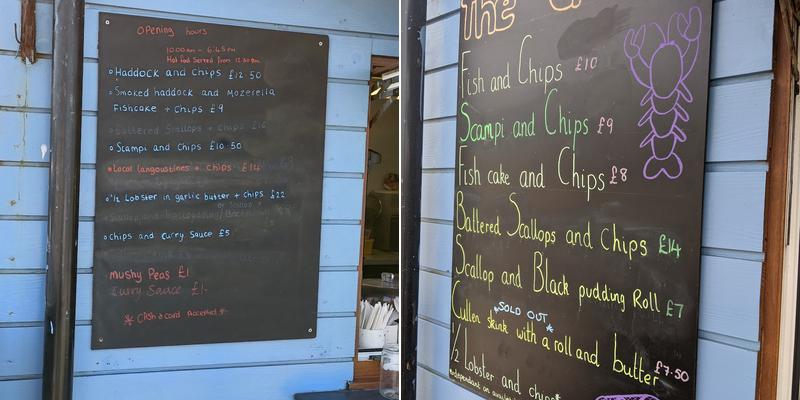 Opening hours
10:00am - 6:45pm
Hot food served from 12:30pm
Haddock and Chips £12.50
Smoked haddock and Mozerella
Fishcake + Chips £9
Battered Scallops + Chips £16
Scampi and Chips £10.50
Local langoustines + Chips £14
1/2 Lobster in garlic butter + Chips £22
Chips and curry Sauce £5
Mushy Peas £1
Curry Sauce £1-
* Cash & card Accepted *
The
Fish and Chips £10
Scampi and Chips £9
Fish cake and Chips £8
Battered Scallops and Chips £14
Scallop and Black pudding Roll £7
*SOLD OUT*
Cullen skink with a roll and butter £7.50
1/2 Lobster and chips*